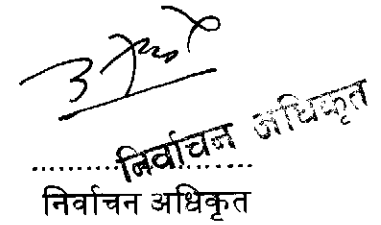 निर्वाचन अधिकृत
....................
निर्वाचन अधिकृत